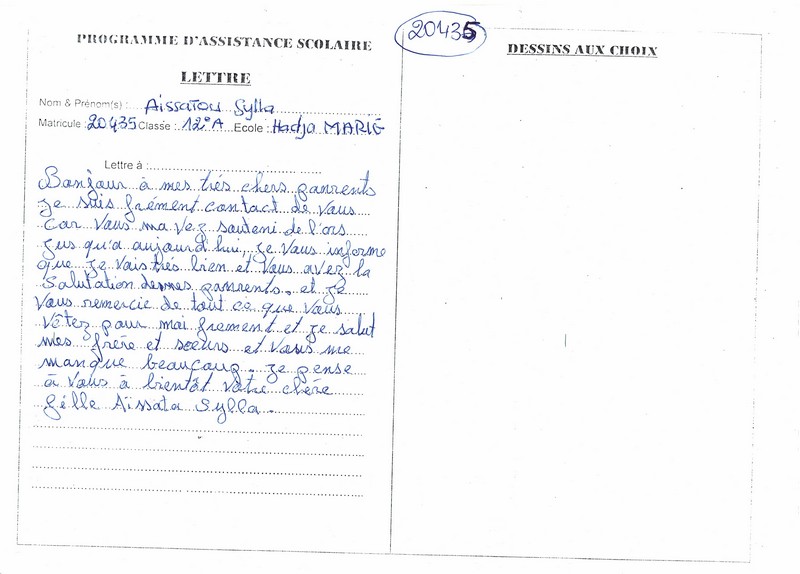 PROGRAMME D'ASSISTANCE SCOLAIRE
20435
DESSINS AUX CHOIX
LETTRE
Nom & Prénom(s) : Aïssatou Sylla
Matricule : 20435 Classe : 12e A Ecole : Hadja MARIE
Lettre à :
Bonjour à mes très chers panrents
je suis frément contact de vous
car vous ma vez souteni de l'ors
jus qu'a aujourd'hui, je vous informe
que je vais très bien et vous avez la
salutation de mes panrents. et je
vous remercie de tout ce que vous
vêtez pour moi frement et je salut
mes frère et soeurs et vous me
manque beaucoup. je pense
à vous à bientôt votre chère
fille Aïssata Sylla.